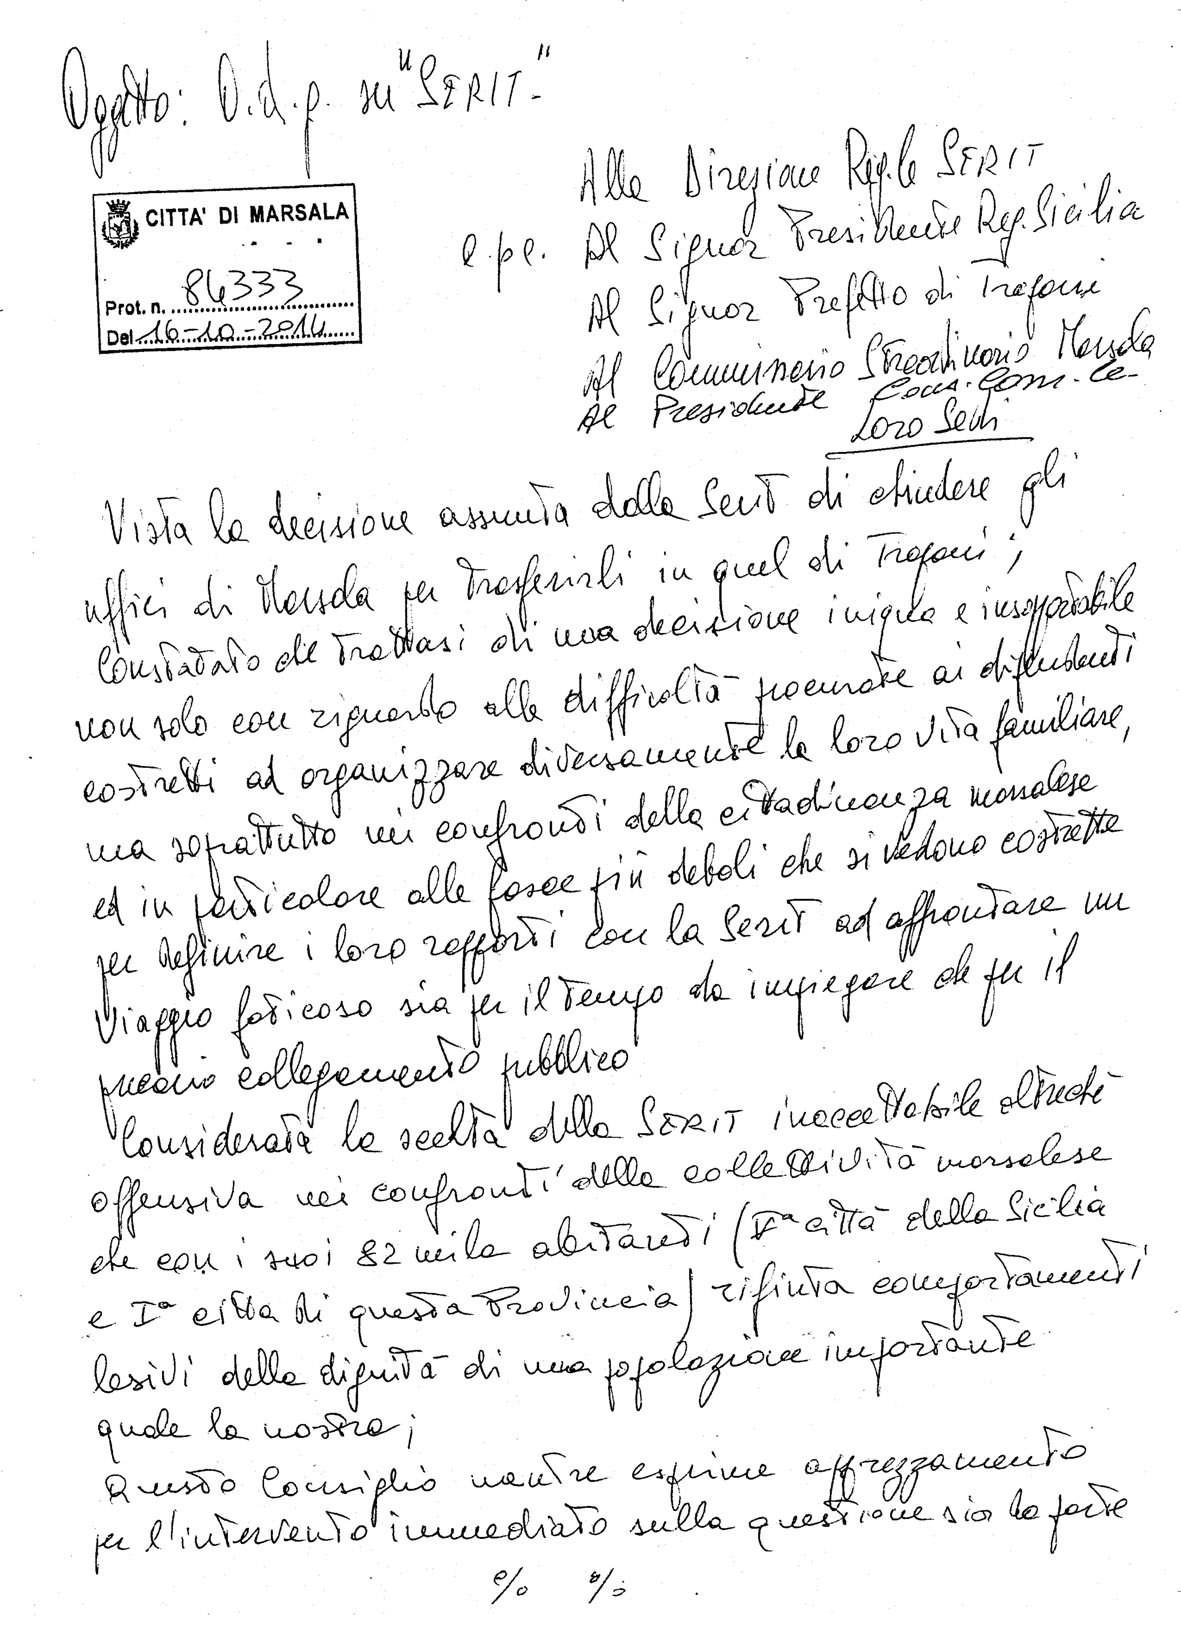 Oggetto: O.d.g. su "SERIT"-
CITTA' DI MARSALA
Prot. n. 84333
Del 16-10-2014
Alla Direzione Reg.le SERIT
e.p.c. Al Signor Presidente Reg. Sicilia
Al Signor Prefetto di Trapani
Al Commissario Straordinario Marsala
Al Presidente Cons. Com. le-
Loro Sedi
Vista la decisione assunta dalla Serit di chiudere gli
uffici di Marsala per trasferirli in quel di Trapani;
Constatato che trattasi di una decisione iniqua e insopportabile
non solo con riguardo alle difficoltà procurate ai dipendenti
costretti ad organizzare diversamente la loro vita familiare,
ma soprattutto nei confronti della cittadinanza marsalese
ed in particolare alle fasce più deboli che si vedono costrette
per definire i loro rapporti con la Serit ad affrontare un
viaggio faticoso sia per il tempo da impiegare che per il
precario collegamento pubblico
Considerata la scelta della SERIT inaccettabile oltreché
offensiva nei confronti della collettività marsalese
che con i suoi 82 mila abitanti (Vª città della Sicilia
e Iª città di questa Provincia) rifiuta comportamenti
lesivi della dignità di una popolazione importante
quale la nostra;
Questo Consiglio mentre esprime apprezzamento
per l'intervento immediato sulla questione sia da parte
%. %.